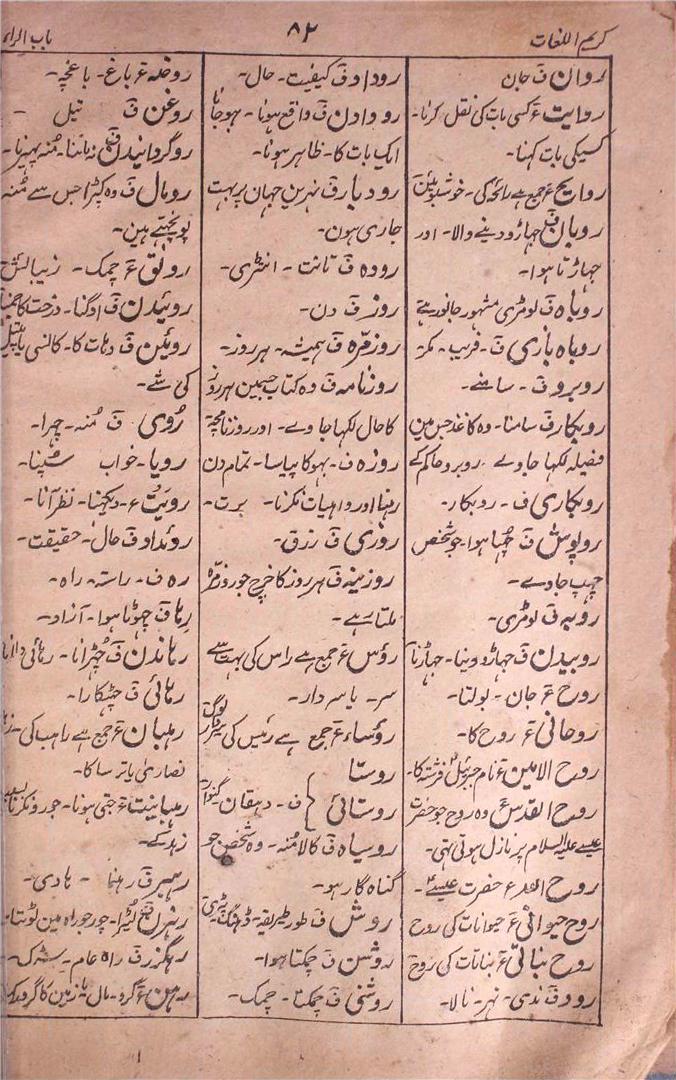 کریم اللغات
۸۲
باب الراء
روان ف جان
روایت ع کسی بات کی نقل کرنا۔
کسیکی بات کہنا۔
روایح ع جمع ہے رائحہ کی۔ خوشبوئین
روبان ف جہاڑو دینے والا۔ اور
جہاڑتا ہوا۔
روباہ ف لومڑی مشہور جانور ہے
روباہ بازی ف۔ فریب۔ مکر
روبرو ف۔ سامنے۔
روبکار ف سامنا۔ وہ کاغذ جس مین
فیصلہ لکہا جاوے روبرو حاکم کے
روبکاری ف۔ روبکار۔
روپوش ف چہپا ہوا۔ جو شخص
چہپ جاوے۔
روبہ ف لومڑی۔
روبیدن ف جہاڑو دینا۔ جہاڑنا
روح ع جان۔ بولتا۔
روحانی ع روح کا۔
روح الامین ع نام جبرئیل فرشتہ کا۔
روح القدس وہ روح جو حضرت
عیسے علیہ السلام پر نازل ہوتی تہی۔
روح اللہ ع حضرت عیسے۔
روح حیوانی ع حیوانات کی روح
روح نباتی ع نباتات کی روح
رود ف ندی۔ نہر۔ نالا۔
روداد ف کیفیت۔ حال۔
رودادن ف واقع ہونا۔ ہوجانا
ایک بات کا۔ ظاہر ہونا۔
رودبار ف نہرین جہان پر بہت
جاری ہون۔
رودہ ف تانت۔ انتڑی۔
روز ف دن۔
روزمرہ ف ہمیشہ۔ ہر روز۔
روزنامہ ف وہ کتاب جسمین ہر روز
کا حال لکہا جاوے۔ اور روزنامچہ
روزہ ف۔ بہوکا پیاسا۔ تمام دن
رہنا اور واہیات نکرنا۔ برت۔
روزی ف رزق۔
روزینہ ف ہر روز کا خرچ جو روزمرہ
ملتا ہے۔
رؤس ع جمع ہے راس کی بہت سے
سر۔ یا سردار۔
رؤساء ع جمع ہے رئیس کی سردار لوگ
روستا
روستائی } ف۔ دہقان گنوار
روسیاہ ف کالا منہ۔ وہ شخص جو
گناہ گار ہو۔
روش ف طور طریقہ۔ ڈہنگ۔
روشن ف چمکتا ہوا۔
روشنی ف چمکتا۔ چمک۔
روضہ ع باغ۔ باغچہ۔
روغن ف تیل۔
روگردانیدن ف نہ ماننا۔ منہ پہیرنا۔
رومال ف وہ کپڑا جس سے منہ
پونچہتے ہین۔
رونق ع چمک۔ زیبائش
روئیدن ف اوگنا۔ درخت کا جمنا
روئین ف دہات کا۔ کانسی یا پیتل
کی شے۔
روی ف منہ۔ چہرا۔
رویا۔ خواب سپنا۔
رویت ع۔ دیکہنا۔ نظر آنا۔
روئداد ف حال۔ حقیقت۔
رہ ف۔ راستہ۔ راہ۔
رہا ف چہوٹا ہوا۔ آزاد۔
رہاندن ف چہڑانا۔ رہائی دلانا
رہائی ف چہٹکارا۔
رہبان ع جمع ہے راہب کی۔
نصاری یا ترسا کا۔
رہبانیت ع جتی ہونا۔ جورو نکرنا بسبب
زہد کے۔
رہبر ف رہنما۔ ہادی۔
رہزن ف لٹیرا۔ چور جو راہ مین لوٹتا۔
رہگزر ف راہ عام۔ سڑک۔
رہن ع گرو۔ مال یا زمین کا گرو رکہنا